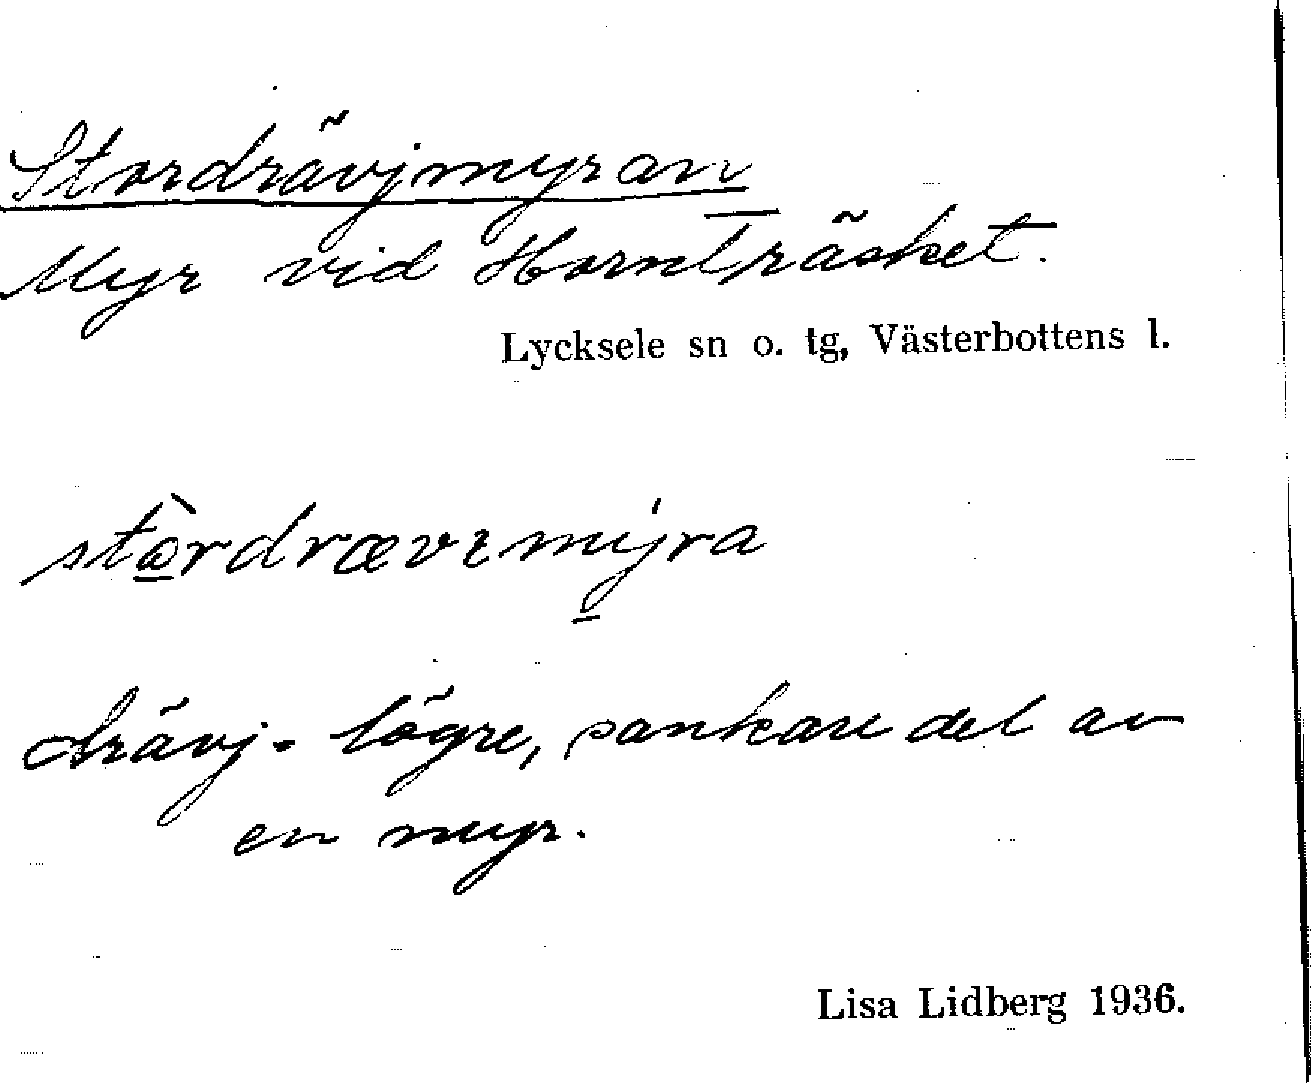 Stordrävjmyran
Myr vid Hornträsket.
Lycksele sn o. tg, Västerbottens l.
stò̠rdrævɩmý̠ra
drävj = lägre, sankare del av
en myr.
Lisa Lidberg 1936.